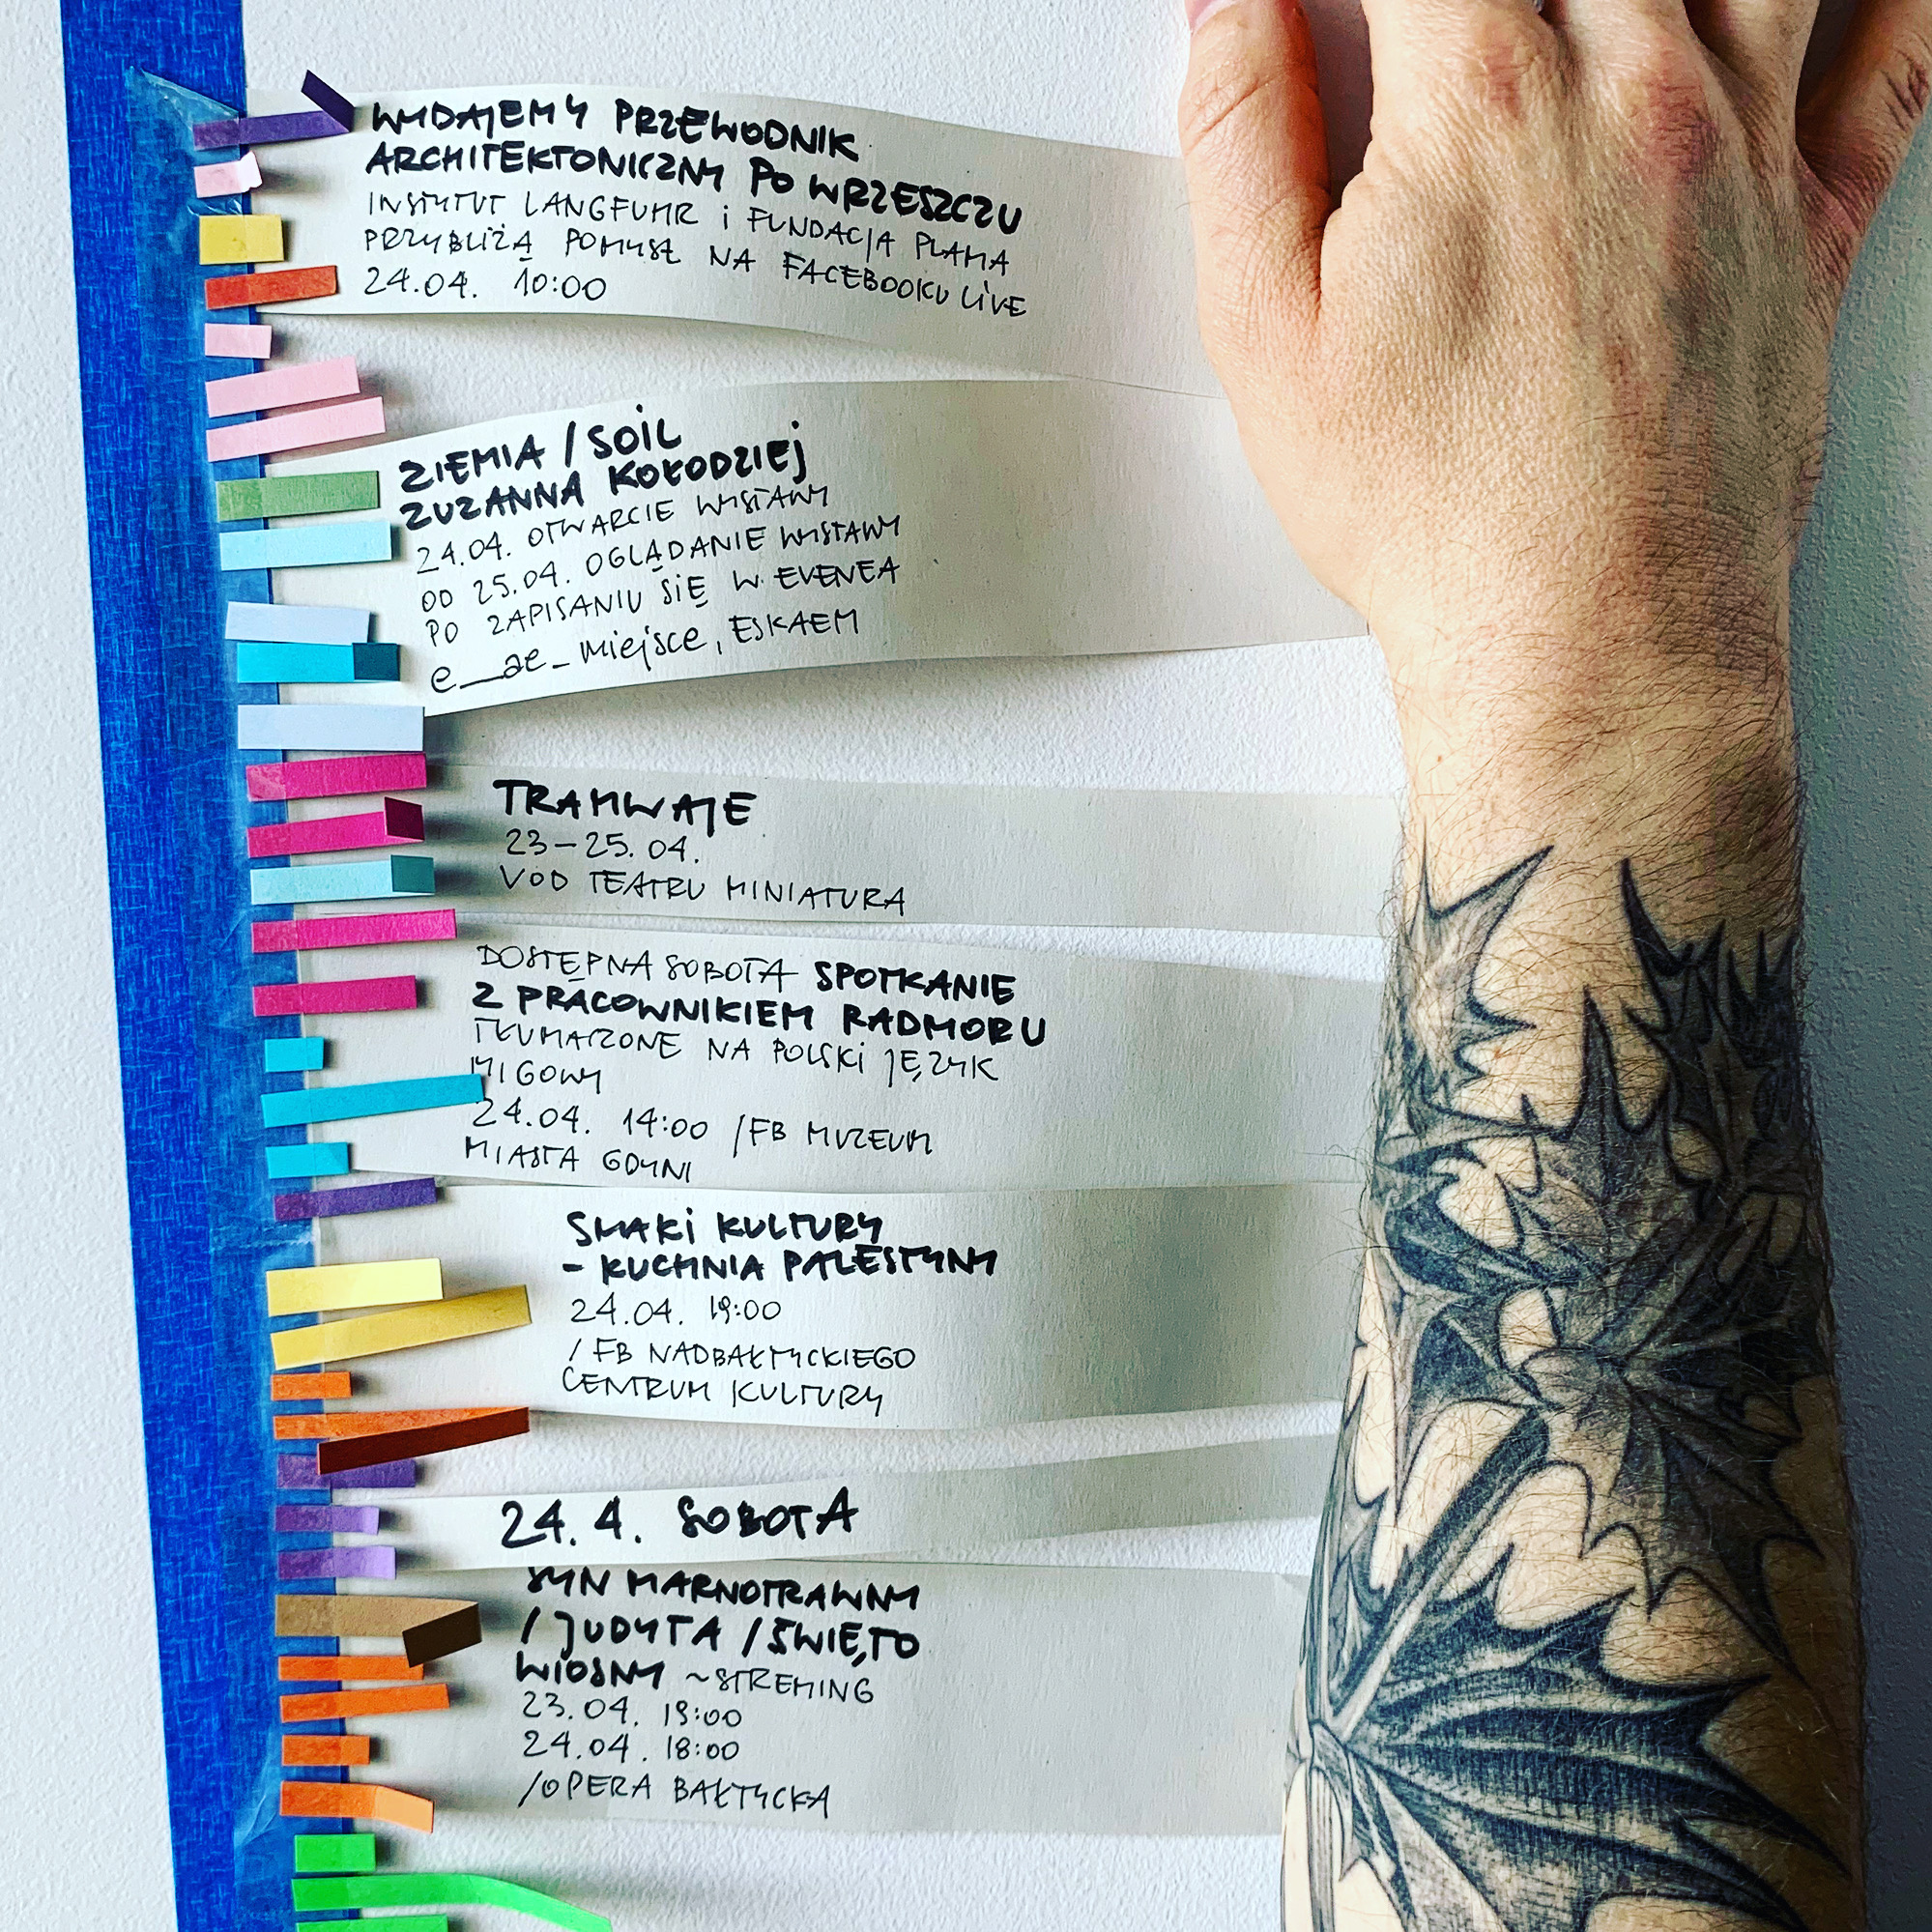 WYDAJEMY PRZEWODNIK
ARCHITEKTONICZNY PO WRZESZCZU
INSTYTUT LANGFUHR i FUNDACJA PLAMA
PRZYBLIŻĄ POMYSŁ NA FACEBOOKU LIVE
24.04. 10:00
ZIEMIA / SOIL
ZUZANNA KOŁODZIEJ
24.04. OTWARCIE WYSTAWY
OD 25.04. OGLĄDANIE WYSTAWY
PO ZAPISANIU SIĘ W EVENEA
e__ae_miejsce, ESKAEM
TRAMWAJE
23-25.04.
VOD TEATRU MINIATURA
DOSTĘPNA SOBOTA SPOTKANIE
Z PRACOWNIKIEM RADMORU
TŁUMACZONE NA POLSKI JĘZYK
MIGOWY
24.04. 14:00 /FB MUZEUM
MIASTA GDYNI
SMAKI KULTURY
- KUCHNIA PALESTYNY
24.04. 19:00
/ FB NADBAŁTYCKIEGO
CENTRUM KULTURY
24.4. SOBOTA
SYN MARNOTRAWNY
/ JUDYTA / ŚWIĘTO
WIOSNY ~STREMING
23.04. 19:00
24.04. 18:00
/OPERA BAŁTYCKA